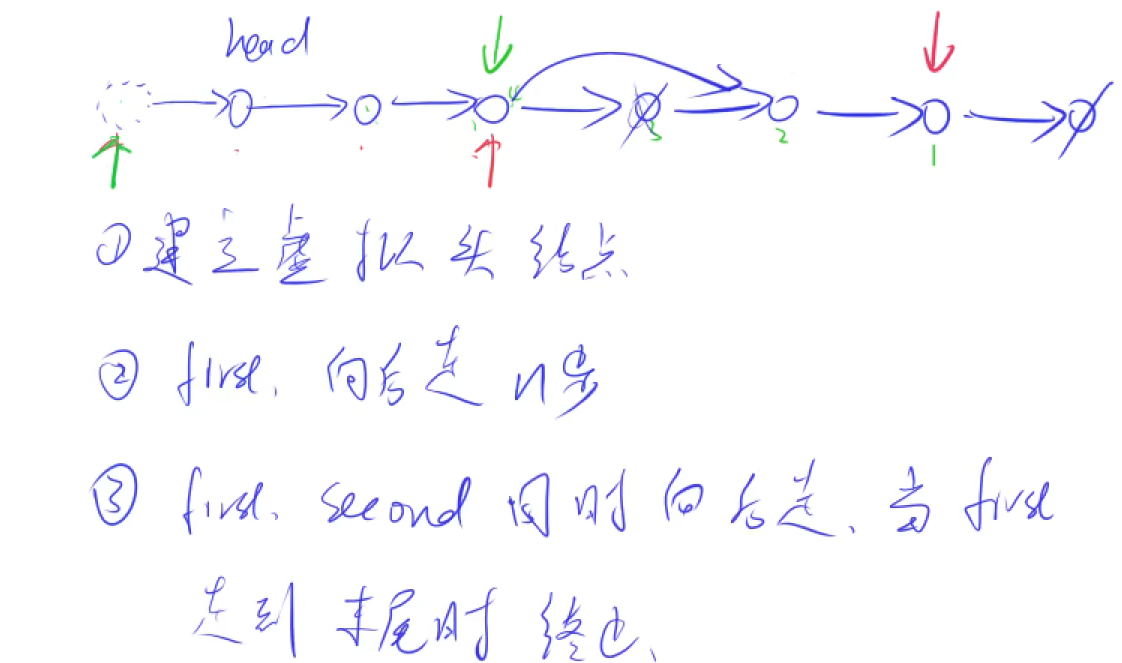 head
3 2 1
①建立虚拟头结点
② first, 向后走n步
③ first、second同时向后走、当first
走到末尾时终止、